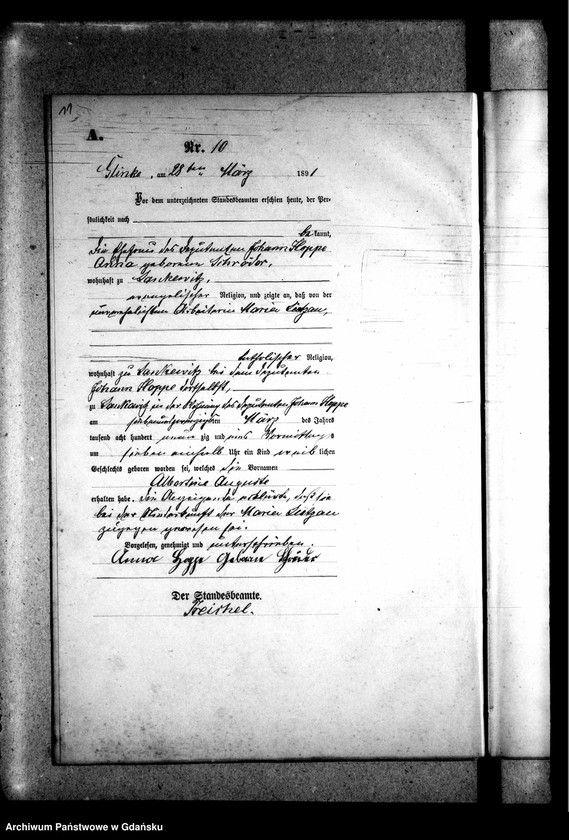 11
A.
Nr. 10
Glinke, am 28ten März 1891
Vor dem unterzeichneten Standesbeamten erschien heute, der Per-
sönlichkeit nach
be kannt,
die Ehefrau des Deputanten Johann Hoppe
Anna geborene Schröder,
wohnhaft zu Sankewitz,
evangelischer Religion, und zeigte an, daß von der
unverehelichten Arbeiterin Maria Lietzau,
katholischer Religion,
wohnhaft zu Sankewitz bei dem Deputanten
Johann Hoppe dortselbst,
zu Sankewitz in der Wohnung des Deputanten Johann Hoppe
am siebenundzwanzigsten März des Jahres
tausend acht hundert neun zig und eins Vormittags
um sieben einhalb Uhr ein Kind weib lichen
Geschlechts geboren worden sei, welches die Vornamen
Albertine Auguste
erhalten habe. Die Anzeigende erklärte, daß sie
bei der Niederkunft der Maria Lietzau
zugegen gewesen sei.
Vorgelesen, genehmigt und unterschrieben.
Anna Hoppe Geborne Schröder
Der Standesbeamte.
Treichel.
Archiwum Państwowe w Gdańsku